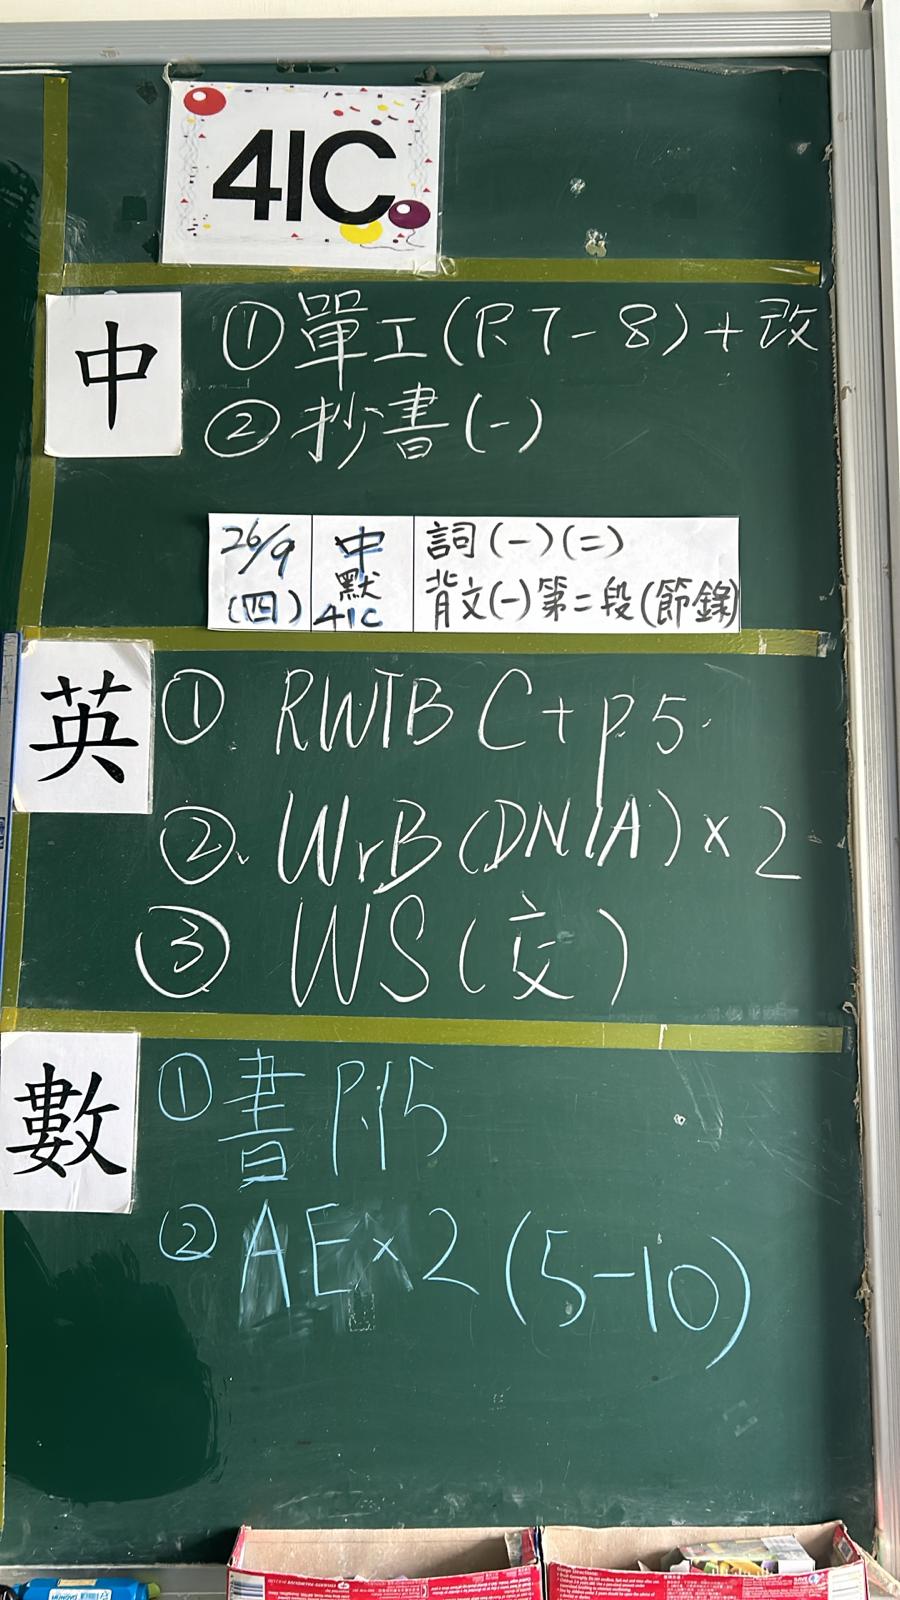 41C
中
①單工(P.7-8)+改
②抄書(一)
26/9
(四)
中
默
41C
詞(一)(二)
背文(一)第二段(節錄)
英
① RWTB C+p.5
② WrB(DN1A)×2
③ WS(交)
數
①書P.15
②AE×2(5-10)